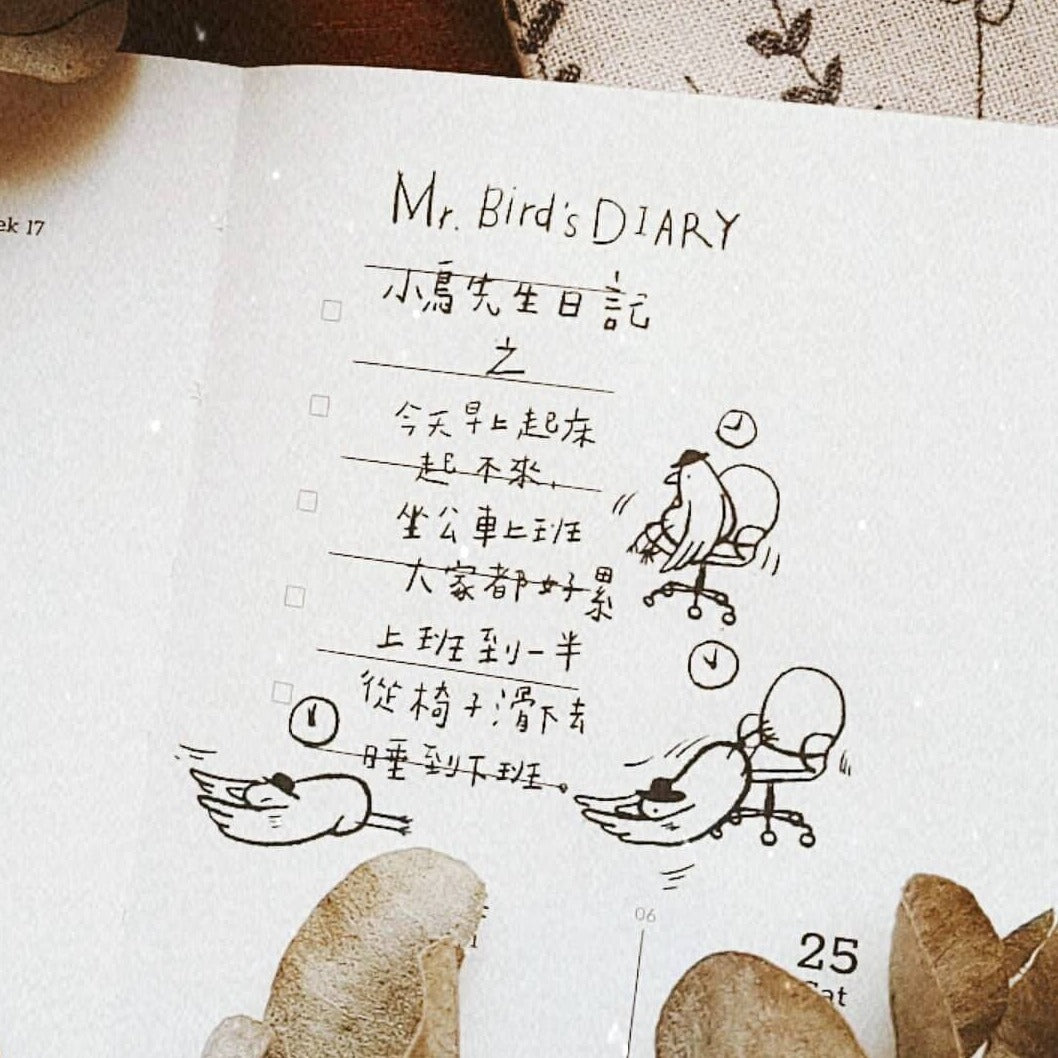 ek 17
Mr. Bird's DIARY
小鳥先生日記
之
今天早上起床
起不來,
坐公車上班
大家都好累
上班到一半
從椅子滑下去
睡到下班。
06
25
Sat